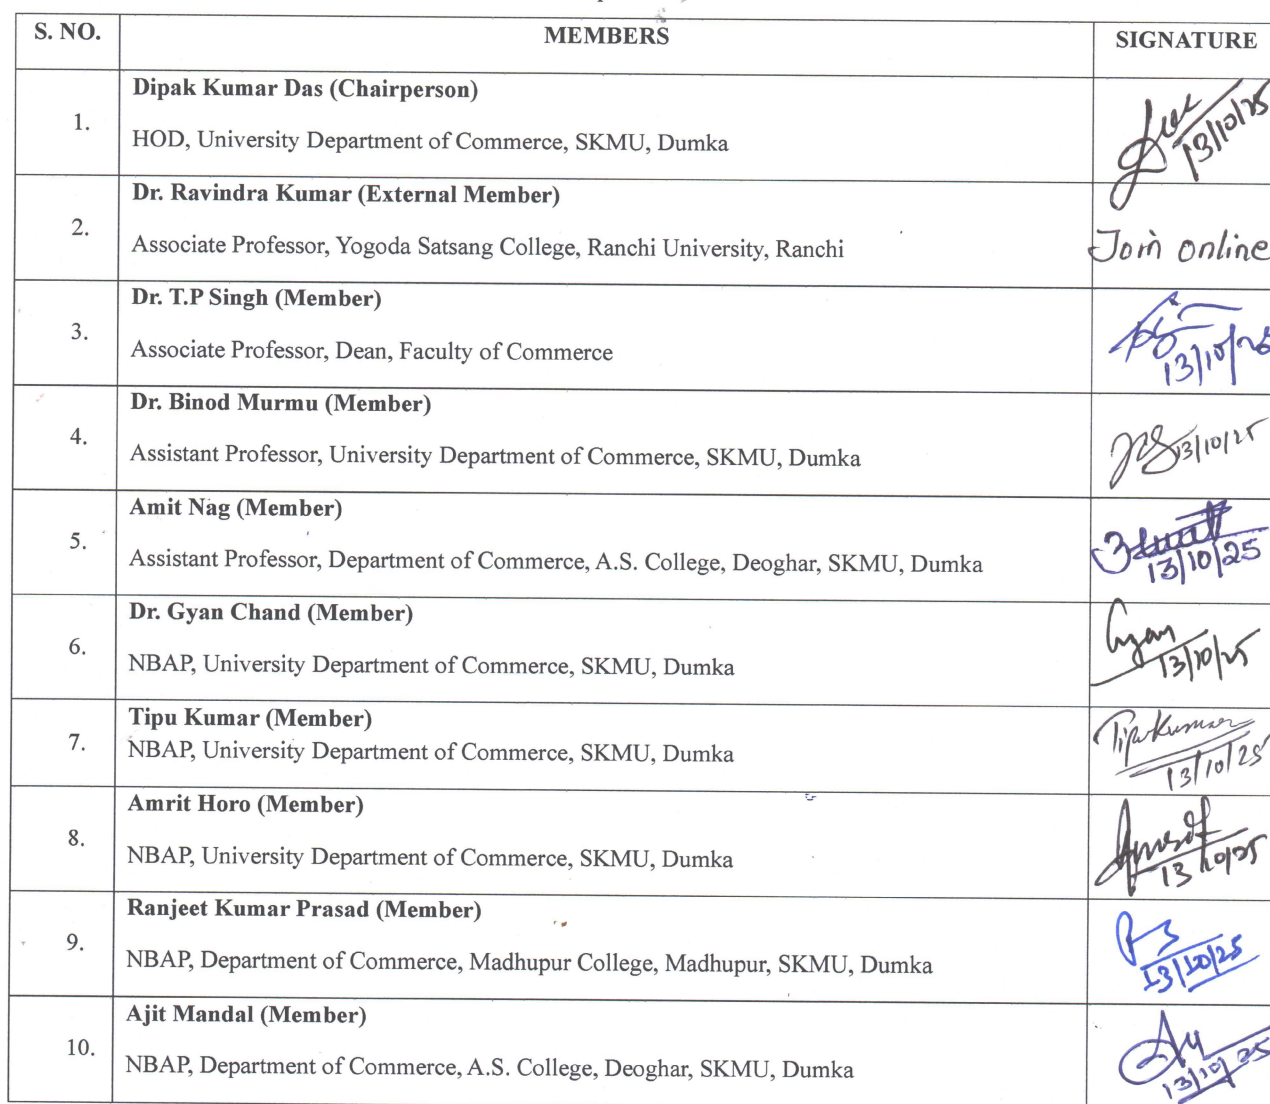 S. NO. MEMBERS SIGNATURE
Dipak Kumar Das (Chairperson)
1. HOD, University Department of Commerce, SKMU, Dumka 13/10/25
Dr. Ravindra Kumar (External Member)
2. Associate Professor, Yogoda Satsang College, Ranchi University, Ranchi Join online
Dr. T.P Singh (Member)
3. Associate Professor, Dean, Faculty of Commerce 13/10/25
Dr. Binod Murmu (Member)
4. Assistant Professor, University Department of Commerce, SKMU, Dumka 13/10/25
Amit Nag (Member)
5. Assistant Professor, Department of Commerce, A.S. College, Deoghar, SKMU, Dumka 13/10/25
Dr. Gyan Chand (Member) Gyan
6. NBAP, University Department of Commerce, SKMU, Dumka 13/10/25
Tipu Kumar (Member) Tipu Kumar
7. NBAP, University Department of Commerce, SKMU, Dumka 13/10/25
Amrit Horo (Member) Amrit
8. NBAP, University Department of Commerce, SKMU, Dumka 13/10/25
Ranjeet Kumar Prasad (Member)
9. NBAP, Department of Commerce, Madhupur College, Madhupur, SKMU, Dumka 13/10/25
Ajit Mandal (Member)
10. NBAP, Department of Commerce, A.S. College, Deoghar, SKMU, Dumka 13/10/25